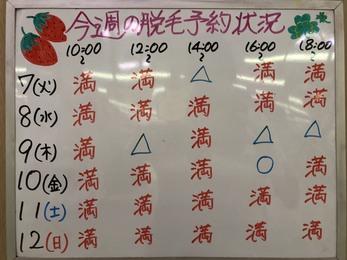 今週の脱毛予約状況
10:00〜 12:00〜 14:00〜 16:00〜 18:00〜
7(火) 満 満 △ 満 満
8(水) 満 満 満 満 満
9(木) 満 △ 満 △ △
10(金) 満 満 満 ○ 満
11(土) 満 満 満 満 満
12(日) 満 満 満 満 満